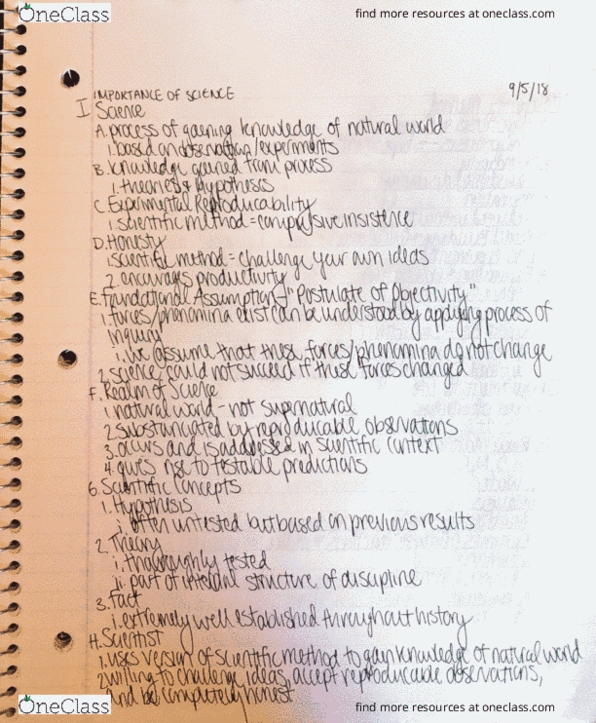 OneClass
find more resources at oneclass.com
IMPORTANCE OF SCIENCE
9/5/18
I Science
A. process of gaining knowledge of natural world
1. based on observations/experiments
B. knowledge gained from process
1. theories & hypothesis
C. Experimental Reproducability
1. scientific method = compulsive insistence
D. Honesty
1. scientific method = challenge your own ideas
2. encourages productivity
E. Foundational Assumption / "Postulate of Objectivity"
1. forces/phenomina exist can be understood by applying process of
inquiry
i. we assume that these forces/phenomina do not change
2. science could not succeed if these forces changed
F. Realm of Science
1. natural world - not supernatural
2. substantiated by reproducable observations
3. occurs and is addressed in scientific context
4. gives rise to testable predictions
G. Scientific Concepts
1. Hypothesis
i. often untested but based on previous results
2. Theory
i. thoroughly tested
ii. part of structure of discipline
3. Fact
i. extremely well established throughout history
H. Scientist
1. uses version of scientific method to gain knowledge of natural world
2. willing to challenge ideas, accept reproducable observations,
and be completely honest
OneClass
find more resources at oneclass.com